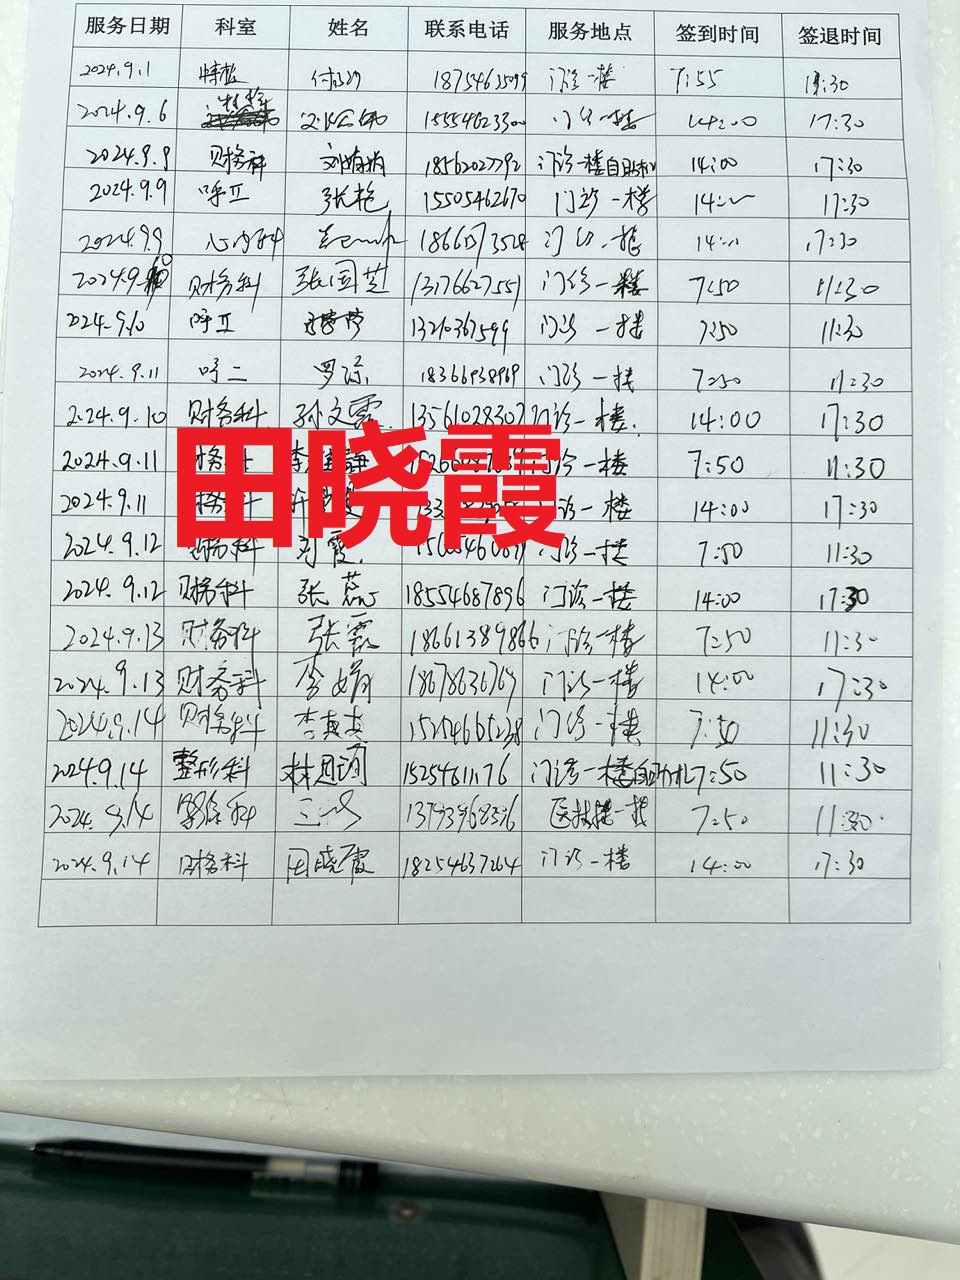 服务日期 科室 姓名 联系电话 服务地点 签到时间 签退时间
2024.9.1 门诊一楼 7:55 11:30
2024.9.6 15554623300 门诊一楼 14:00 17:30
2024.9.9 财务科 刘娟娟 18562027792 门诊一楼自助机 14:00 17:30
2024.9.9 呼Ⅱ 张艳 15505462670 门诊一楼 14:00 17:30
2024.9.9 心内科 门诊一楼 14:00 17:30
2024.9.10 财务科 张国芝 13176627551 门诊一楼 7:50 11:30
2024.9.10 呼Ⅱ 13210367599 门诊一楼 7:50 11:30
2024.9.11 呼二 罗琼 18366938969 门诊一楼 7:50 11:30
2024.9.10 财务科 孙文霞 13561028307 门诊一楼 14:00 17:30
2024.9.11 门诊一楼 7:50 11:30
2024.9.11 门诊一楼 14:00 17:30
田晓霞
2024.9.12 财务科 门诊一楼 7:50 11:30
2024.9.12 财务科 张蕊 18554687896 门诊一楼 14:00 17:30
2024.9.13 财务科 张霞 18661389866 门诊一楼 7:50 11:30
2024.9.13 财务科 李娟 18678636769 门诊一楼 14:00 17:30
2024.9.14 财务科 15254665238 门诊一楼 7:50 11:30
2024.9.14 整形科 林思询 15254611176 门诊一楼自助机 7:50 11:30
2024.9.14 13793968356 医技楼一楼 7:50 11:30
2024.9.14 财务科 田晓霞 18254637264 门诊一楼 14:00 17:30